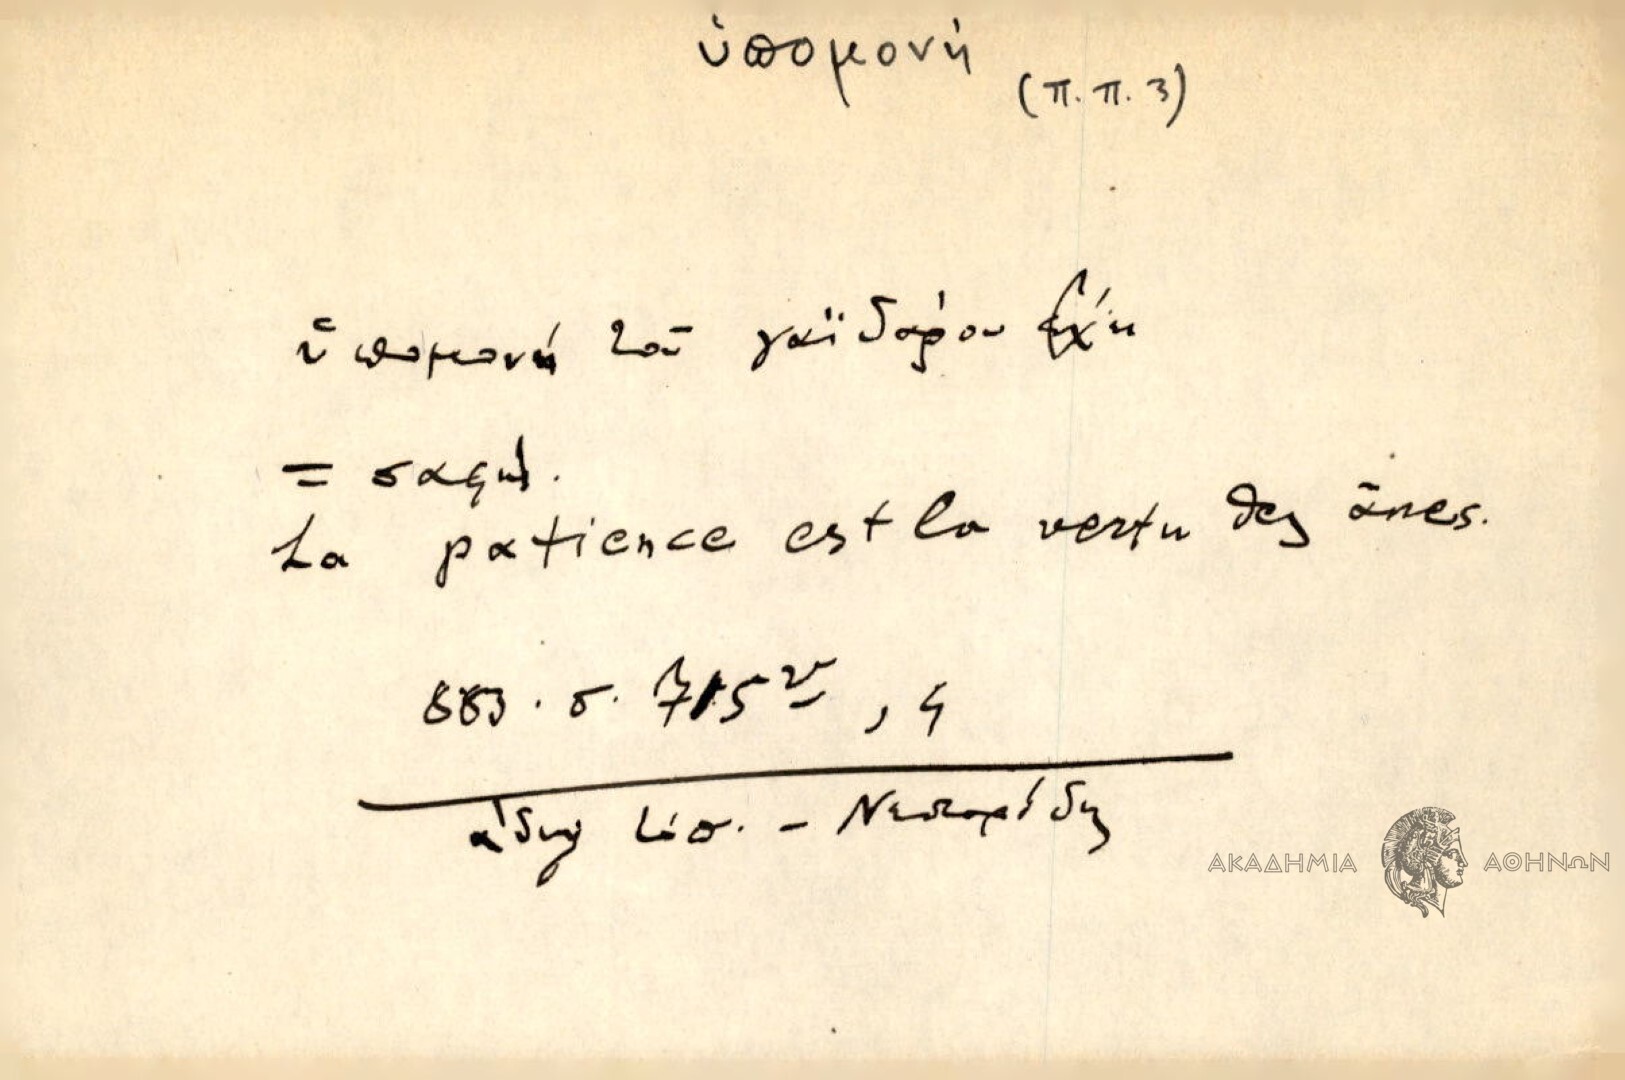 ὑπομονή
(π. π. 3)
ὑπομονή τοῦ γαϊδάρου ἔχει
= σαφής.
La patience est la vertu des ânes.
883. σ. 715 ν, 4
ἄδης τόπ. - Νεστορίδης
ΑΚΑΔΗΜΙΑ ΑΘΗΝΩΝ